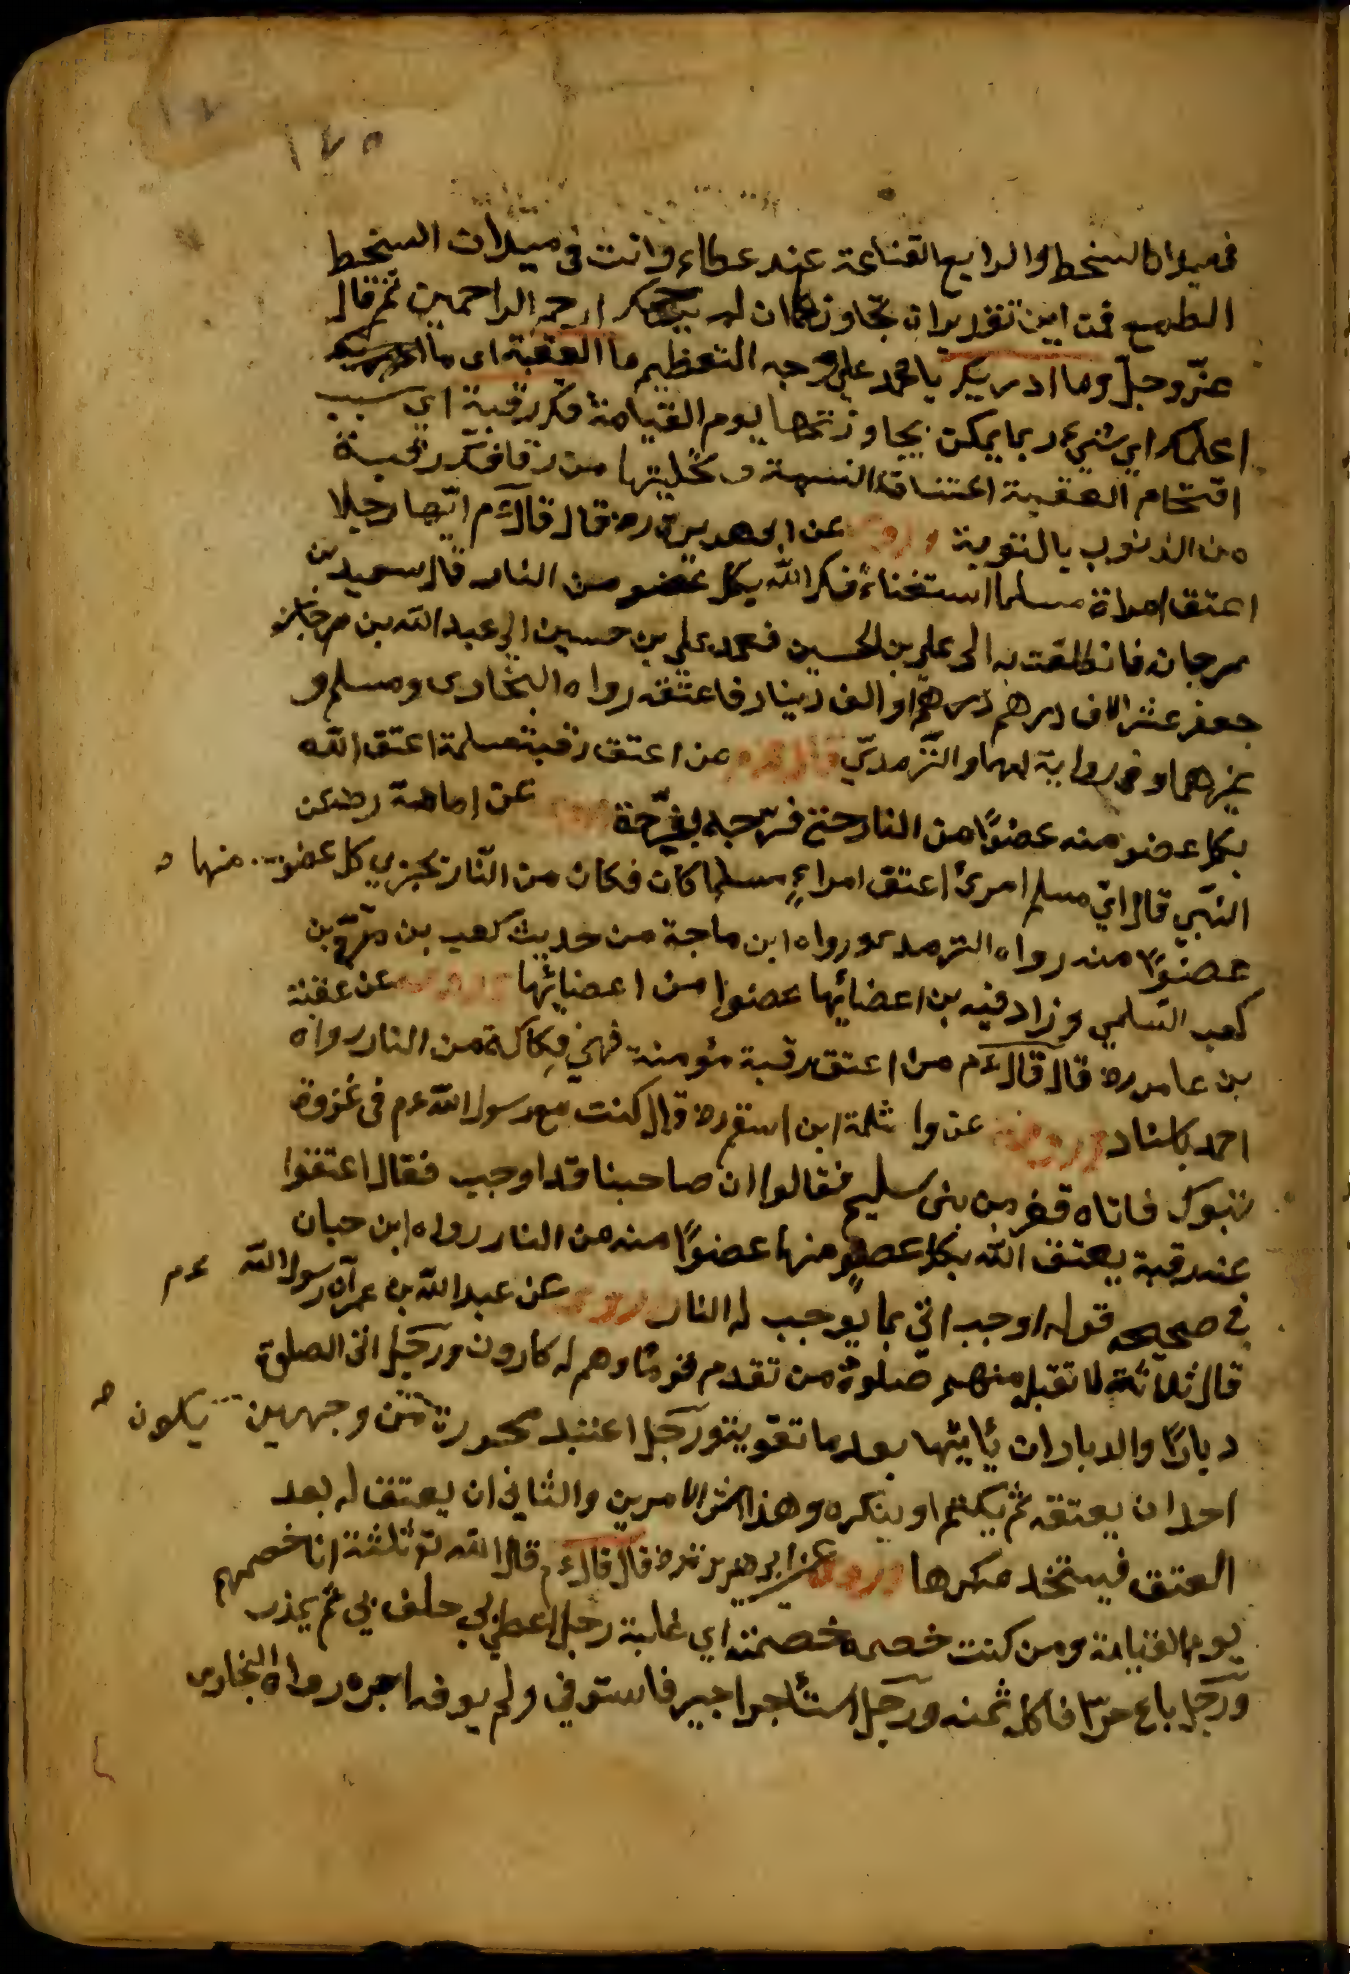 ١٧٥
في ميدان السخط والرابع القناعة عند عطاء وانت في ميدان السخط
الطمع فمن اين تقدير ان تجاوزها ان لم ارحم الراحمين ثم قال
عز وجل وما ادريك يا محمد على وجه التعظيم ما العقبة اى ما
اعلمك اي شيء ربما يمكن يجاوزتها يوم القيامة فك رقبة اي سبب
اقتحام العقبة اعتناق النسمة و تخليتها من رقا فك رقبة
من الذنوب بالتوبة وروى عن ابى هريرة رض قال قال ءم ايما رجلا
اعتق امراة مسلما استغناء فك الله بكل عضو من النار قال سعيد بن
مرجانه فانطلقت به الى على بن الحسين فعمد على بن حسين الى عبد الله بن
جعفر عشر الاف درهم او الف دينار فاعتقه رواه البخارى ومسلم و
غيرهما وفى رواية لهما والترمدي قال ءم من اعتق رقبة مسلمة اعتق الله
بكل عضو منه عضوًا من النار حتى فرجه بفرجه عن امامة رض عن
النبي قال اي مسلم امرئ اعتق امراء مسلما كان فكان من النار يجزي كل عضو منها
عضوًا منه رواه الترمدى ورواه ابن ماجة من حديث كعب بن مرة بن
كعب السلمي وزاد فيه بن اعضائها عضوا من اعضائها عن عقبة
بن عامر رض قال قال ءم من اعتق رقبة مؤمنة فهي فكاكه من النار رواه
احمد عن واثلة ابن اسقع رض قال كنت مع رسول الله ءم فى غزوة
تبوك فاتاه نفر من بنى سليم فقالوا ان صاحبنا قد اوجب فقال اعتقوا
عنه رقبة يعتق الله بكل عضو منها عضوًا منه من النار رواه ابن حبان
في صحيحه قوله اوجب اتي بما يوجب له النار وروى عن عبد الله بن عمر ان رسول الله ءم
قال ثلاثة لا تقبل منهم صلوة من تقدم قوما وهم له كارون ورجل اتى الصلوة
دبارًا والدباران يأتيها بعد ما تفوته ورجل اعتبد محررة من وجهين يكون
احد ان يعتقه ثم يكتم او ينكره وهذا شر الامرين والثاني ان يعتق له بعد
العتق فيستخد مكرها وروى عن ابى هريرة رض قال قال ءم قال الله تع ثلثة انا خصمهم
يوم القيامة ومن كنت خصمه خصمته اي غلبة رجل اعطي بي حلف بي ثم يغدر
ورجل باع حرًا فاكل ثمنه ورجل استأجر اجير فاستوفي ولم يوفه اجره رواه البخارى